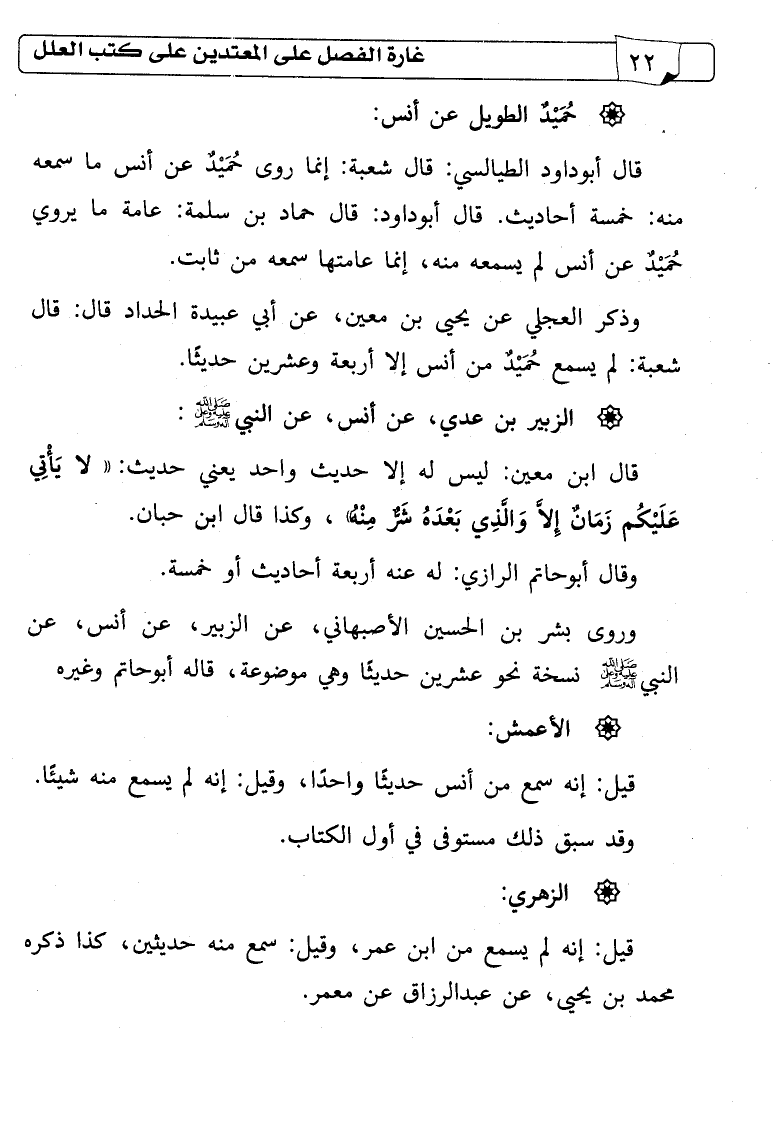 ٢٢ غارة الفصل على المعتدين على كتب العلل
حُمَيْدٌ الطويل عن أنس:
قال أبوداود الطيالسي: قال شعبة: إنما روى حُمَيْدٌ عن أنس ما سمعه
منه: خمسة أحاديث. قال أبوداود: قال حماد بن سلمة: عامة ما يروي
حُمَيْدٌ عن أنس لم يسمعه منه، إنما عامتها سمعه من ثابت.
وذكر العجلي عن يحيى بن معين، عن أبي عبيدة الحداد قال: قال
شعبة: لم يسمع حُمَيْدٌ من أنس إلا أربعة وعشرين حديثًا.
الزبير بن عدي، عن أنس، عن النبي صلى الله عليه وعلى آله وسلم :
قال ابن معين: ليس له إلا حديث واحد يعني حديث: « لا يَأْتِي
عَلَيْكُم زَمَانٌ إِلاَّ وَالَّذِي بَعْدَهُ شَرٌّ مِنْهُ» ، وكذا قال ابن حبان.
وقال أبوحاتم الرازي: له عنه أربعة أحاديث أو خمسة.
وروى بشر بن الحسين الأصبهاني، عن الزبير، عن أنس، عن
النبي صلى الله عليه وعلى آله وسلم نسخة نحو عشرين حديثًا وهي موضوعة، قاله أبوحاتم وغيره
الأعمش:
قيل: إنه سمع من أنس حديثًا واحدًا، وقيل: إنه لم يسمع منه شيئًا.
وقد سبق ذلك مستوفى في أول الكتاب.
الزهري:
قيل: إنه لم يسمع من ابن عمر، وقيل: سمع منه حديثين، كذا ذكره
محمد بن يحيى، عن عبدالرزاق عن معمر.